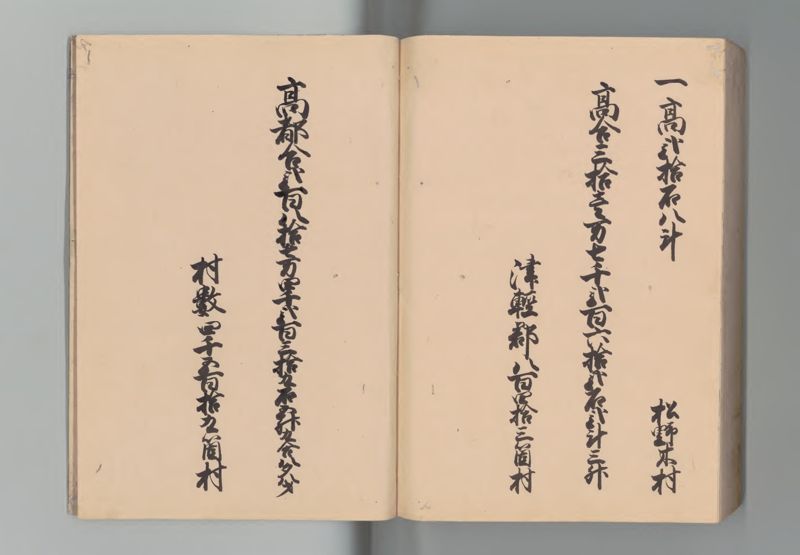 一 高弐拾石八斗
松野木村
高合三拾壱万七千弐百六拾弐石弐斗三升
津輕郡八百四拾三箇村
高都合弐百八拾七万四千弐百三拾九石五斗九合
村數四千五百拾九箇村